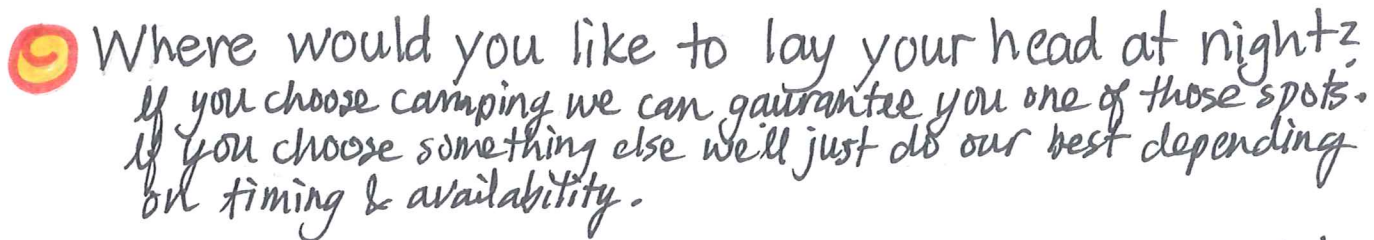 Where would you like to lay your head at night?
If you choose camping we can gaurantee you one of those spots.
If you choose something else we'll just do our best depending
on timing & availability.